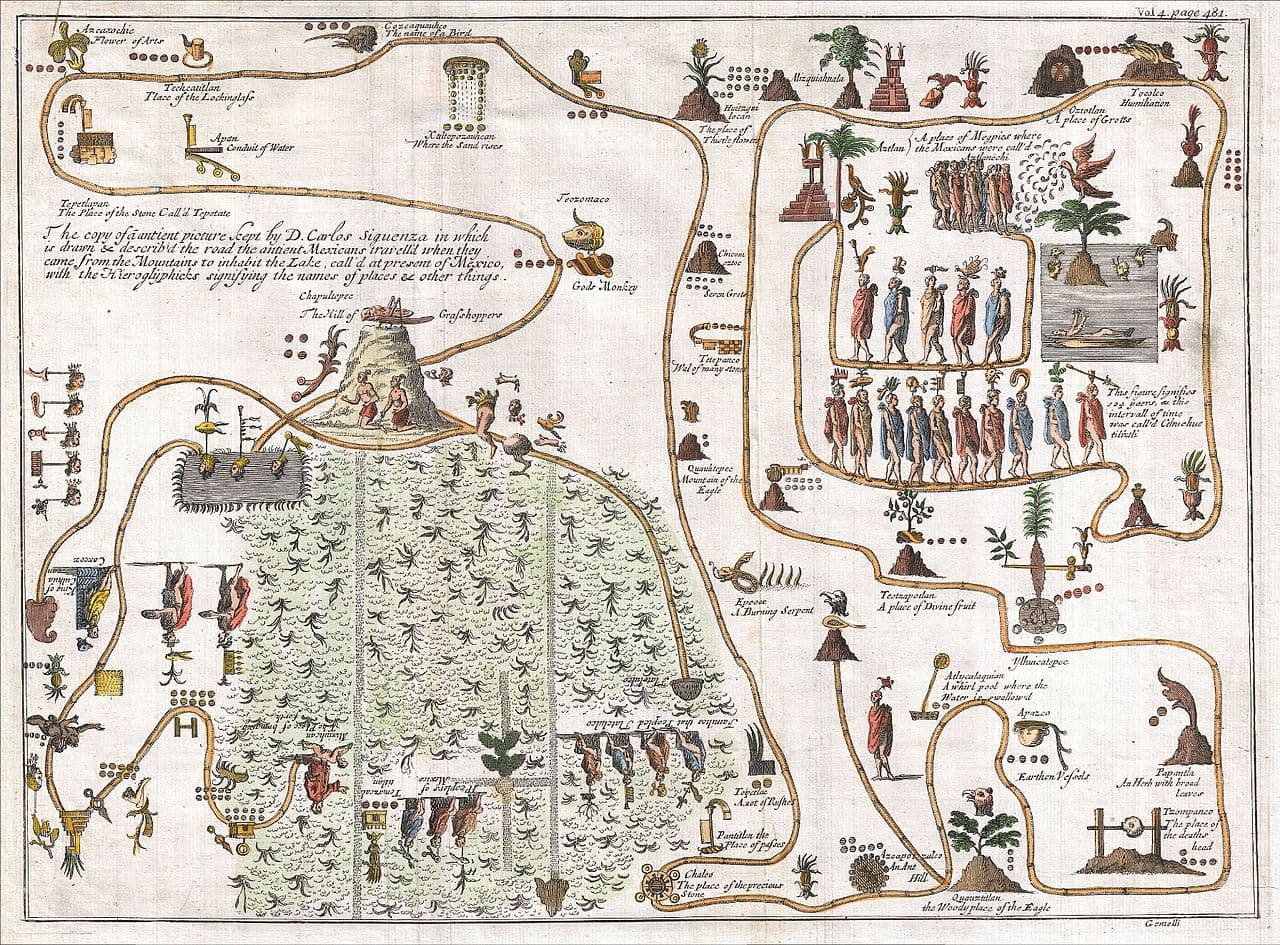 Vol 4. page 481.
Azcaxochic
Flower of Arts
Cozcaquauhco
The name of a Bird
Techcatitlan
Place of the Lockinglass
Apan
Conduit of Water
Xaltepozauhcan
Where the Sand rises
Tepetlapan
The Place of the Stone Call'd Tepetate
The copy of an antient picture kept by D. Carlos Siguenza in which
is drawn & describ'd the road the ancient Mexicans travell'd when they
came from the Mountains to inhabit the Lake, call'd at present of Mexico,
with the Hieroglyphicks signifying the names of places & other things.
Teozomaco
Gods Monkey
Chapultepec
The Hill of Grasshoppers
Huitzqui
locan
The place of
Thistle flower
Mizquiahuala
Oztotlan
A place of Grotts
Tocolco
Humiliation
Aztlan
A place of Megpies where
the Mexicans were call'd
Aztlanechi
Chicom
oztoc
Seven Grots
Tetepanco
Wal of many stones
Quauhtepec
Mountain of the
Eagle
This figure signifies
104 years, & this
intervall of time
was call'd Cihuehue
tiliztli
Epcoac
A Burning Serpent
Teotzapotlan
A place of Divine fruit
Ylhuicatepec
Atlycalaquian
A whirl pool where the
Water is swallow'd
Apazco
Earthen Vessels
Papantla
An Herb with broad
leaves
Tzompanco
The place of
the deaths
head
Azcapotzalco
An Ant
Hill
Quauztitlan
the Woody place of the Eagle
Chalco
The place of the precious
Stone
Pantitlan the
Place of passes
Tolpetlac
A mat of Rushes
Coxcox
King of
Culhua
Families that Peopled Tlatelulco
Peoplers of
Mexico
Gemelli